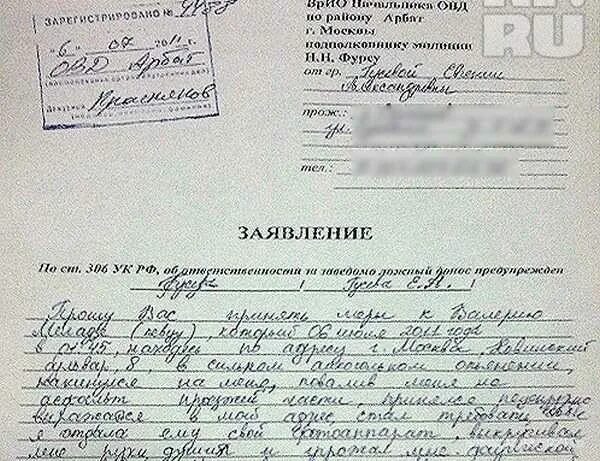 ЗАРЕГИСТРИРОВАНО №
"6" 07 2011 г.
ОВД Арбат
Краснянов
ВрИО Начальника ОВД
по району Арбат
г. Москвы
подполковнику милиции
Н.Н. Фурсу
RU
от гр.
Александровны
прож.:
тел.:
ЗАЯВЛЕНИЕ
По ст. 306 УК РФ, об ответственности за заведомо ложный донос предупрежден
/ Гусева Е.А. /
Прошу Вас принять меры к Валерию
Меладзе (певцу), который 06 июля 2011 года
в находясь по адресу г. Москва, Новинский
бульвар, 8, в сильном алкогольном опьянении,
накинулся на меня, повалив меня на
асфальт проезжей части, принялся нецензурно
выражаться в мой адрес, стал требовать чтобы
я отдала ему свой фотоаппарат, выкручивал
мне руки, душил и угрожал мне